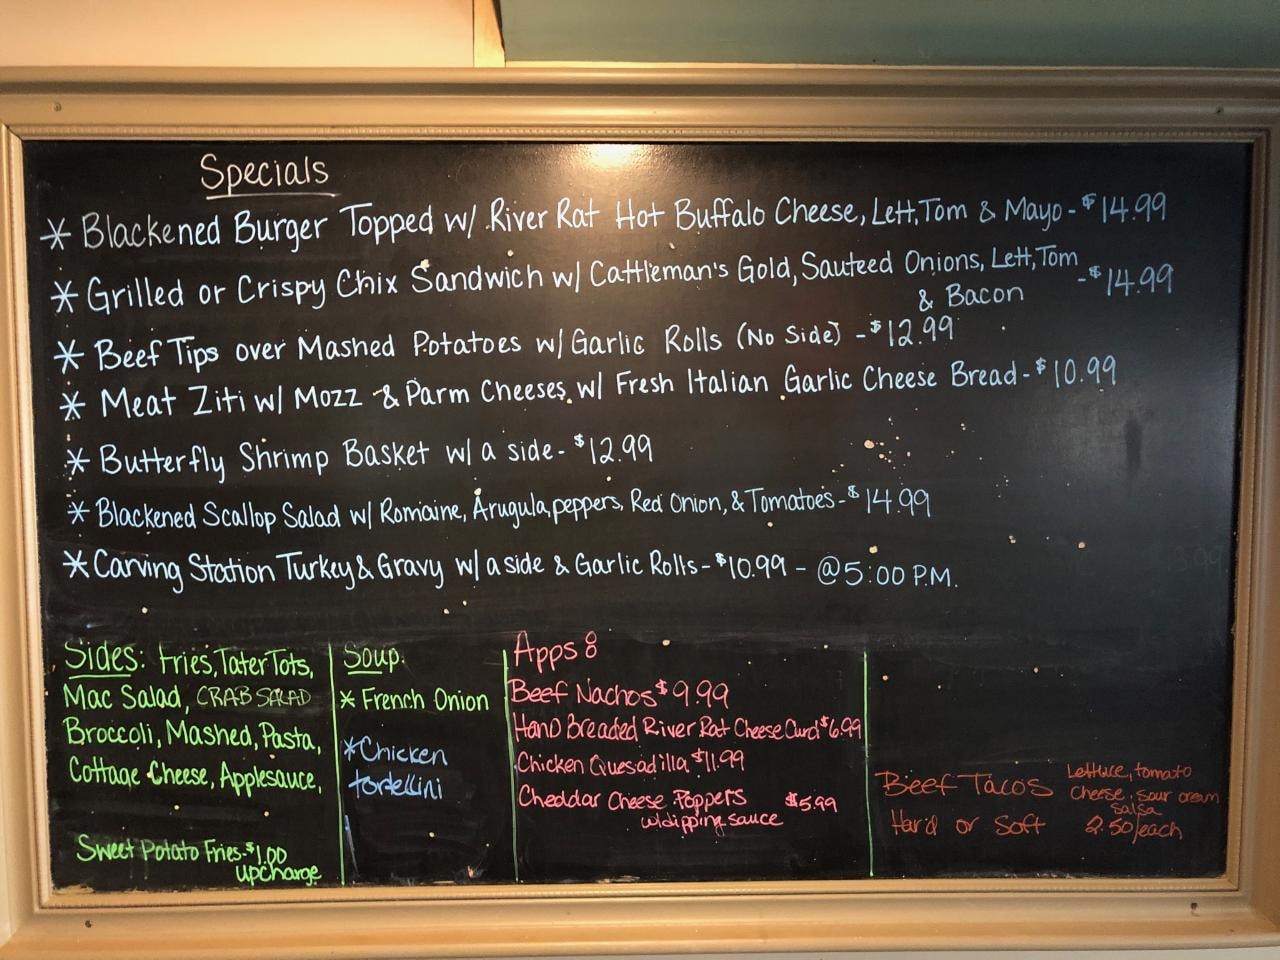 Specials
* Blackened Burger Topped w/ River Rat Hot Buffalo Cheese, Lett, Tom & Mayo - $14.99
* Grilled or Crispy Chix Sandwich w/ Cattleman's Gold, Sauteed Onions, Lett, Tom
& Bacon - $14.99
* Beef Tips over Mashed Potatoes w/ Garlic Rolls (No Side) - $12.99
* Meat Ziti w/ Mozz & Parm Cheeses w/ Fresh Italian Garlic Cheese Bread - $10.99
* Butterfly Shrimp Basket w/ a side - $12.99
* Blackened Scallop Salad w/ Romaine, Arugula, peppers, Red Onion, & Tomatoes - $14.99
* Carving Station Turkey & Gravy w/ a side & Garlic Rolls - $10.99 - @ 5:00 P.M.
Sides: Fries, Tater Tots,
Mac Salad, CRAB SALAD
Broccoli, Mashed, Pasta,
Cottage Cheese, Applesauce,
Sweet Potato Fries - $1.00
upcharge
Soup:
* French Onion
* Chicken
tortellini
Apps 8
Beef Nachos $9.99
Hand Breaded River Rat Cheese Curd $6.99
Chicken Quesadilla $11.99
Cheddar Cheese Poppers $5.99
w/dipping sauce
Beef Tacos
Hard or Soft
Lettuce, tomato
cheese, sour cream
salsa
2.50/each